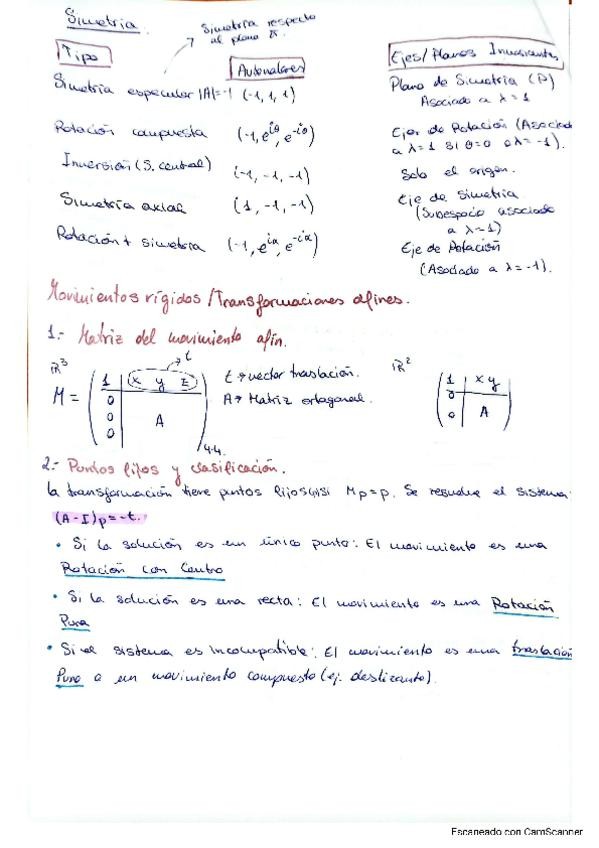 Simetría.
Simetría respecto
al plano π.
Tipo
Autovalores
Ejes/Planos Invariantes
Simetría especular |A|=-1 (-1, 1, 1)
Plano de Simetría (P)
Asociado a λ=1
Rotación compuesta (-1, e^{iθ}, e^{-iθ})
Ejes de Rotación (Asociado
a λ=1 si θ=0 o λ=-1).
Inversión (S. central) (-1, -1, -1)
Solo el origen.
Simetría axial (1, -1, -1)
Eje de simetría
(Subespacio asociado
a λ=1)
Rotación + simetría (-1, e^{iα}, e^{-iα})
Eje de Rotación
(Asociado a λ=-1).
Movimientos rígidos / Transformaciones afines.
1.- Matriz del movimiento afín.
ℝ³
t
M = ( 1 | x y z
0
0 A
0 ) 4·4.
t → vector traslación.
A → Matriz ortogonal.
ℝ²
( 1 | x y
0
0 A )
2.- Puntos fijos y clasificación.
La transformación tiene puntos fijos si Mp=p. Se resuelve el sistema
(A-I)p=-t.
• Si la solución es un único punto: El movimiento es una
Rotación con Centro
• Si la solución es una recta: El movimiento es una Rotación
Pura
• Si el sistema es incompatible: El movimiento es una traslación
Pura o un movimiento compuesto (ej. deslizante).
Escaneado con CamScanner